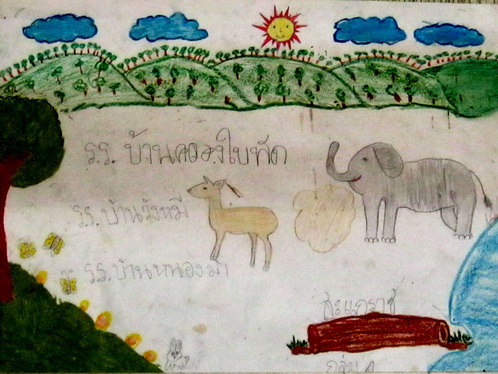 ร.ร. บ้านคลองใบพัด
ร.ร. บ้านวังหมี
ร.ร. บ้านหนอง
สะแกราช
กลุ่ม